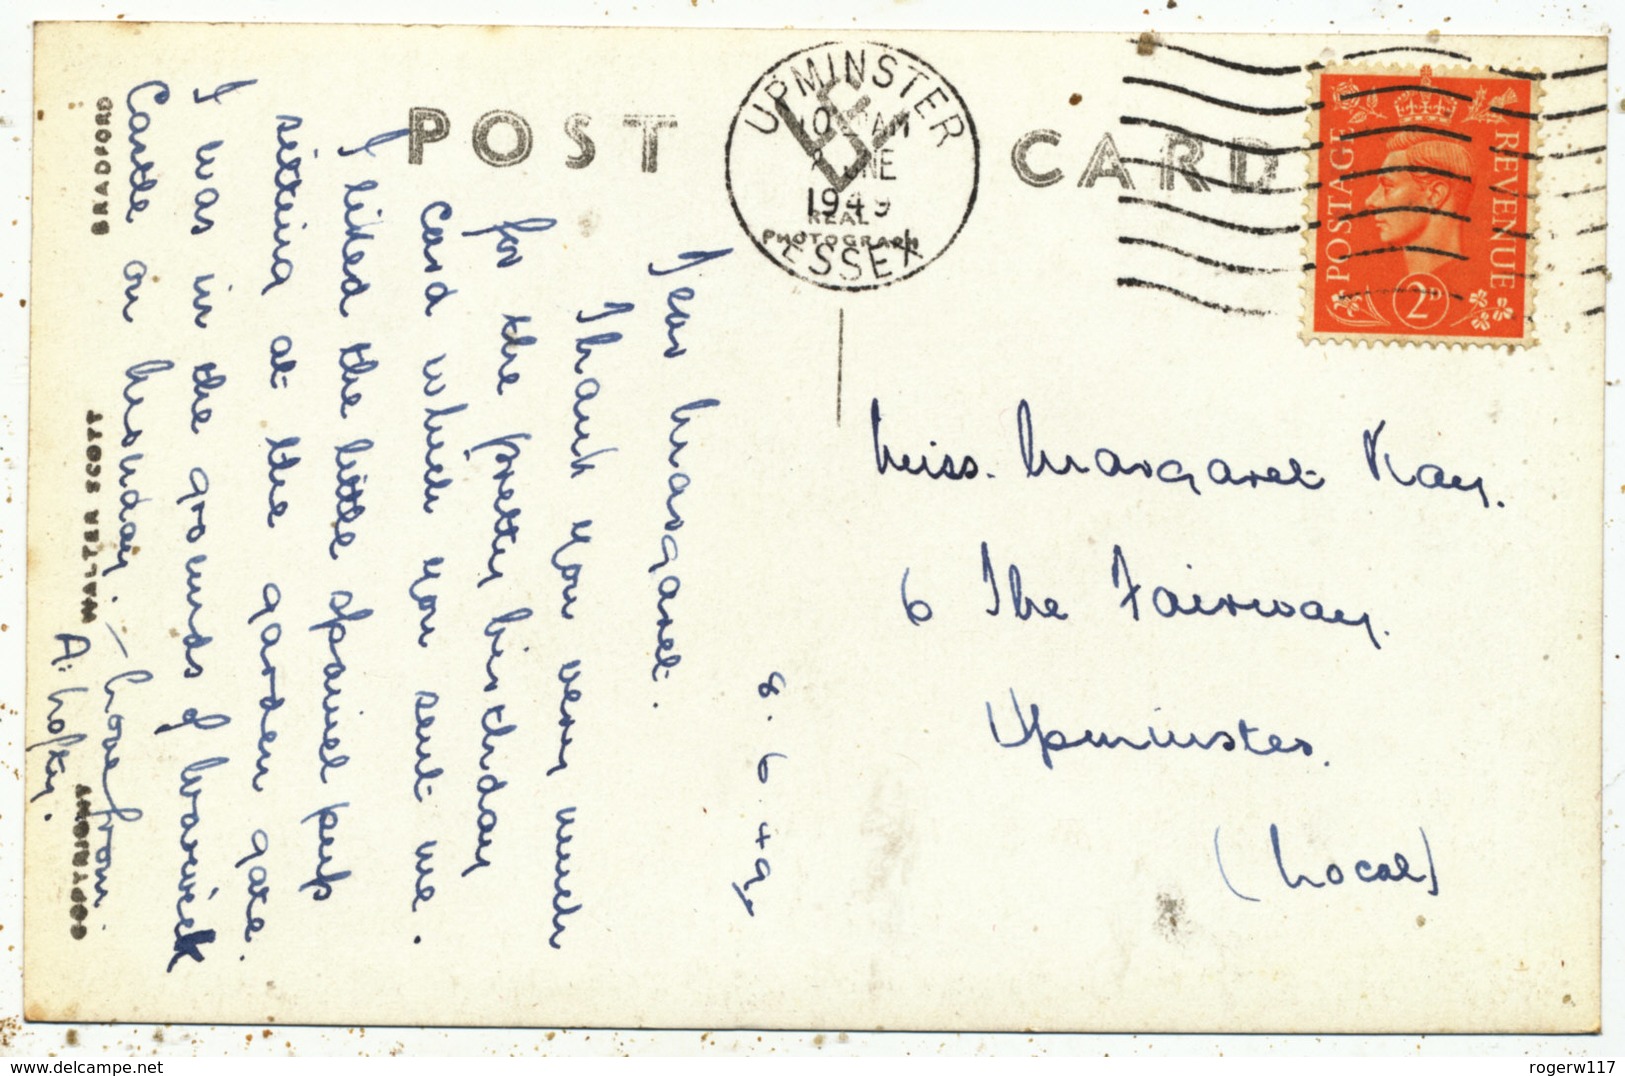 POST CARD
UPMINSTER
10 AM
JUNE
1949
ESSEX
REAL
PHOTOGRAPH
POSTAGE REVENUE
2D
8.6.49
Dear Margaret.
Thank you very much
for the pretty birthday
card which you sent me.
I liked the little spaniel pup
sitting at the garden gate.
I was in the grounds of Warwick
Castle on Monday. – Love from
A:
Miss. Margaret Kay.
6 The Fairway.
Upminster.
(Local)
COPYRIGHT WALTER SCOTT BRADFORD
rogerw117